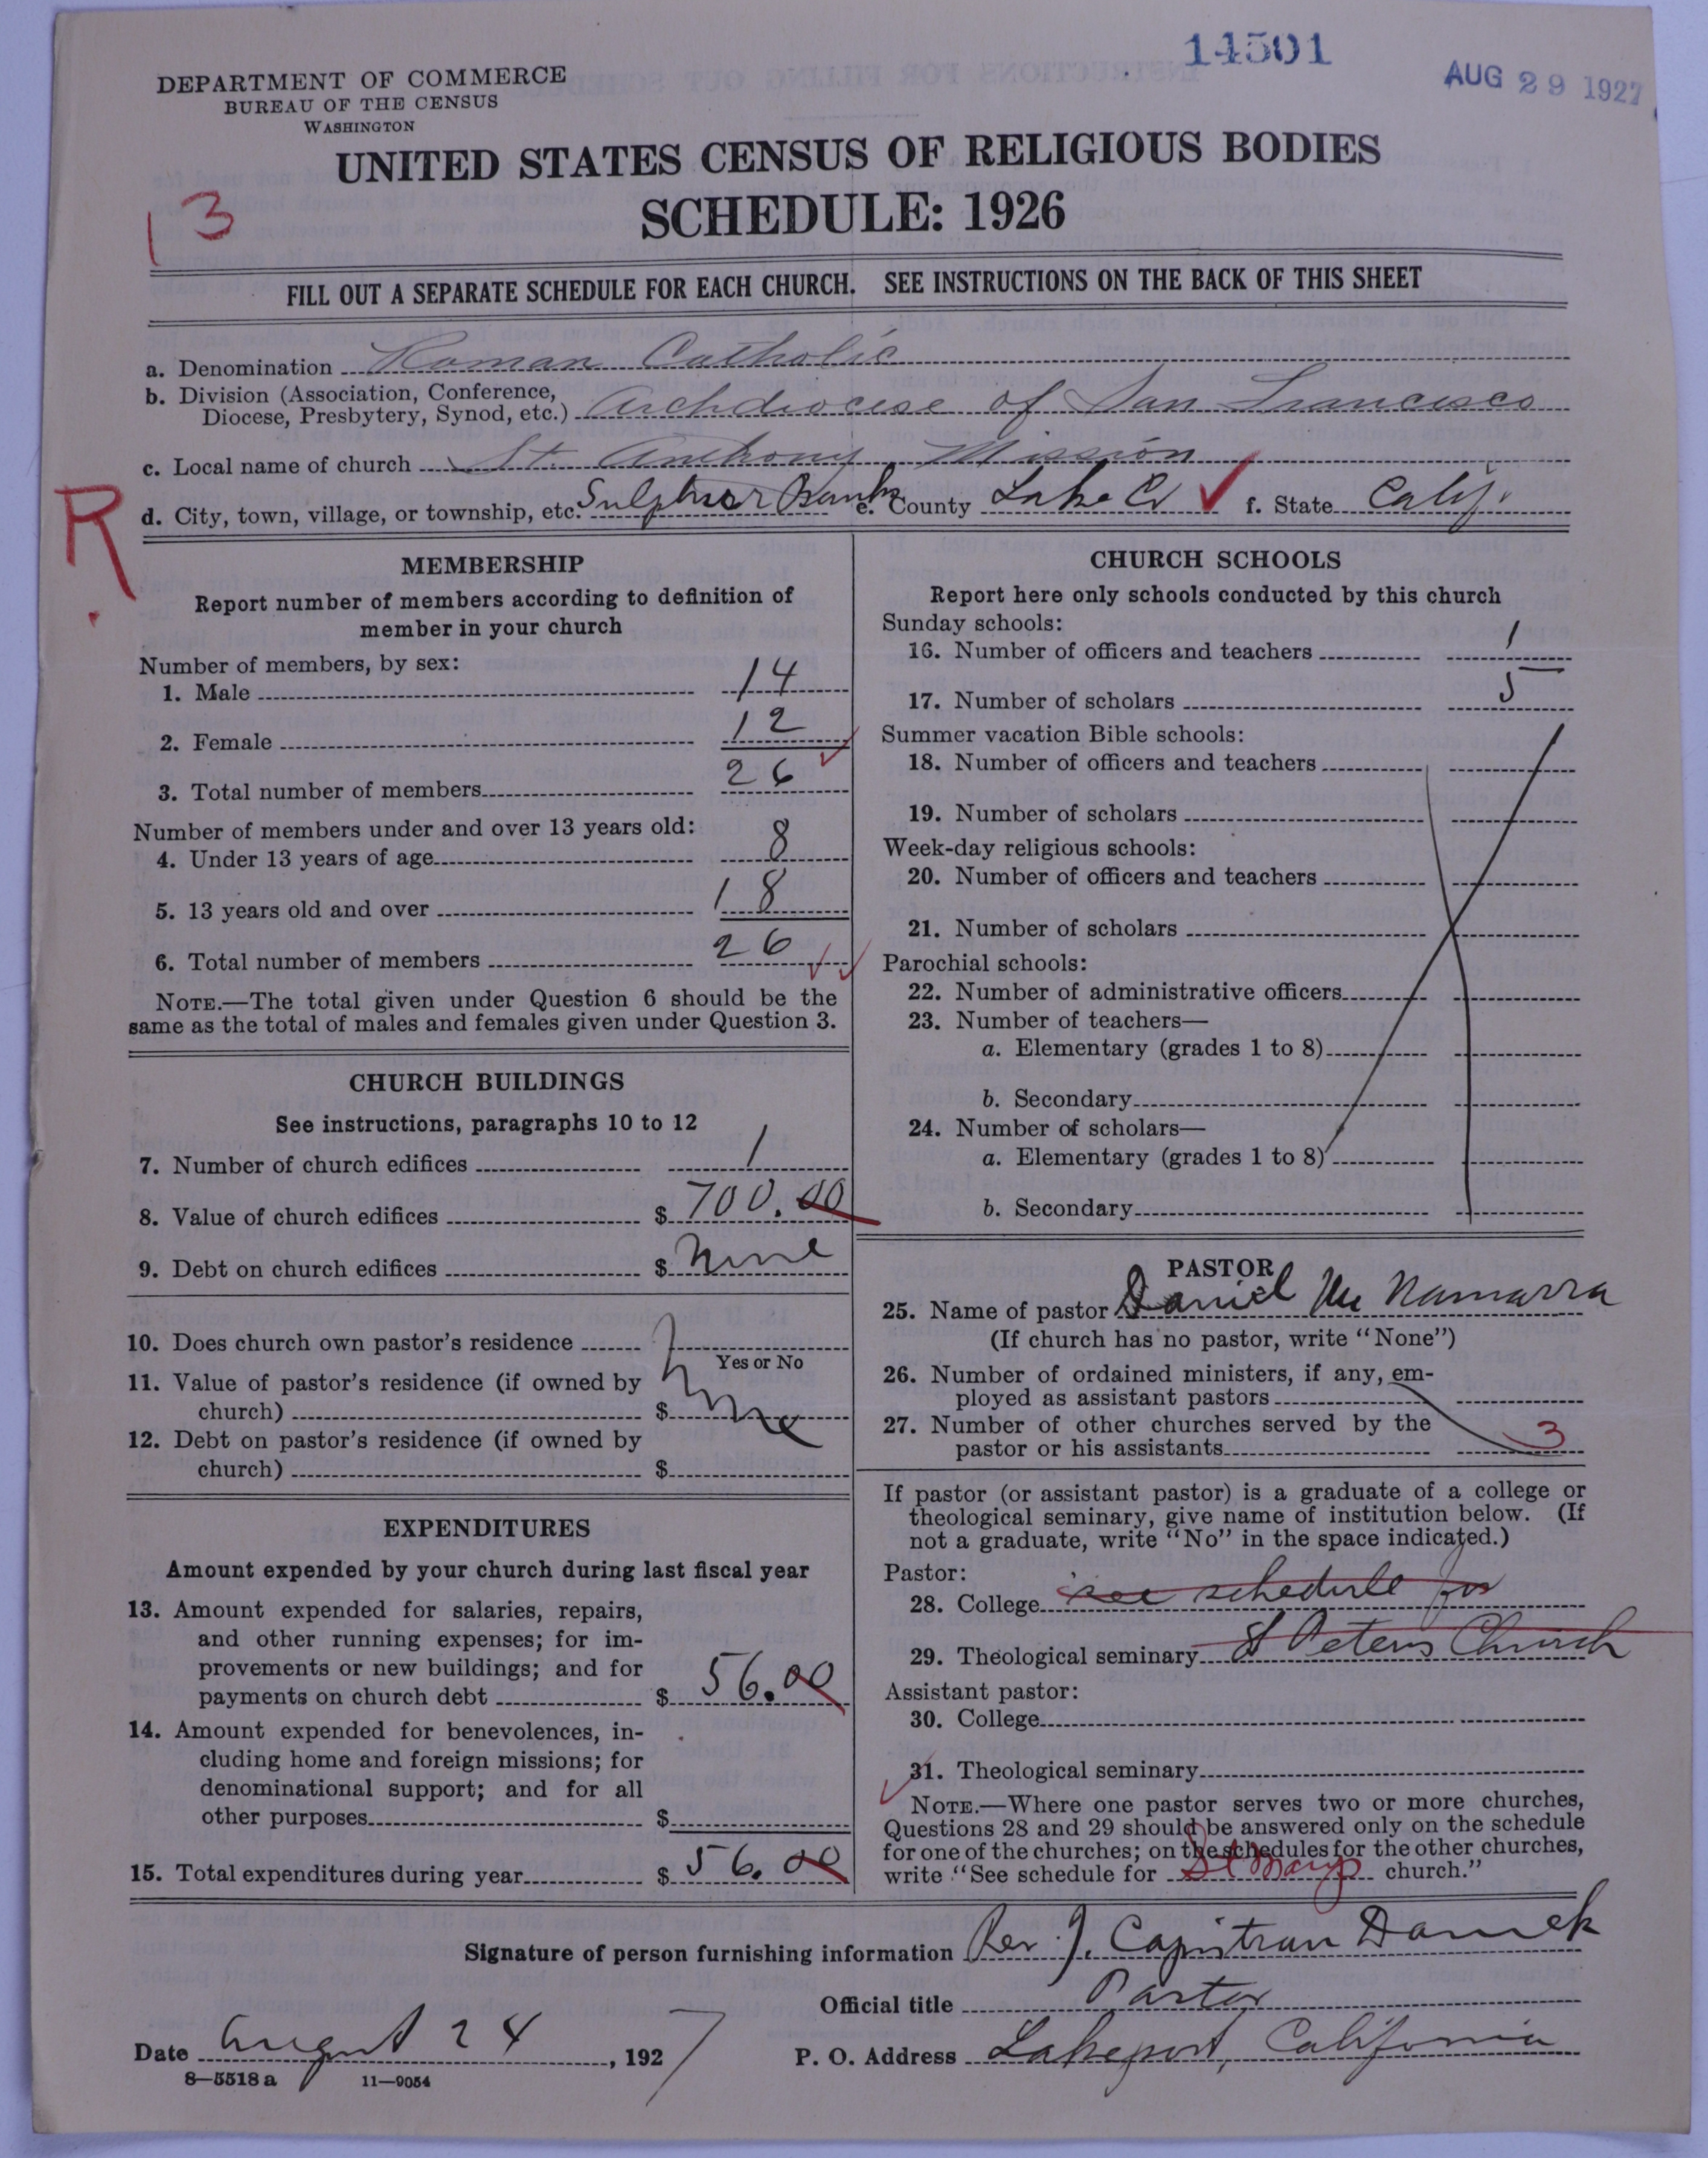 14501
AUG 29 1927
DEPARTMENT OF COMMERCE
BUREAU OF THE CENSUS
WASHINGTON
UNITED STATES CENSUS OF RELIGIOUS BODIES
SCHEDULE: 1926
13
FILL OUT A SEPARATE SCHEDULE FOR EACH CHURCH. SEE INSTRUCTIONS ON THE BACK OF THIS SHEET
a. Denomination Roman Catholic
b. Division (Association, Conference,
Diocese, Presbytery, Synod, etc.) Archdiocese of San Francisco
c. Local name of church St. Anthony Mission
R
d. City, town, village, or township, etc. Sulphur Bank e. County Lake Co ✓ f. State Calif.
MEMBERSHIP
Report number of members according to definition of
member in your church
Number of members, by sex:
1. Male 14
2. Female 12
3. Total number of members 26
Number of members under and over 13 years old:
4. Under 13 years of age 8
5. 13 years old and over 18
6. Total number of members 26
NOTE.—The total given under Question 6 should be the
same as the total of males and females given under Question 3.
CHURCH BUILDINGS
See instructions, paragraphs 10 to 12
7. Number of church edifices 1
8. Value of church edifices $ 700.00
9. Debt on church edifices $ None
10. Does church own pastor's residence
Yes or No
11. Value of pastor's residence (if owned by
church) $
12. Debt on pastor's residence (if owned by
church) $
EXPENDITURES
Amount expended by your church during last fiscal year
13. Amount expended for salaries, repairs,
and other running expenses; for im-
provements or new buildings; and for
payments on church debt $ 56.00
14. Amount expended for benevolences, in-
cluding home and foreign missions; for
denominational support; and for all
other purposes $
15. Total expenditures during year $ 56.00
CHURCH SCHOOLS
Report here only schools conducted by this church
Sunday schools:
16. Number of officers and teachers 1
17. Number of scholars 5
Summer vacation Bible schools:
18. Number of officers and teachers
19. Number of scholars
Week-day religious schools:
20. Number of officers and teachers
21. Number of scholars
Parochial schools:
22. Number of administrative officers
23. Number of teachers—
a. Elementary (grades 1 to 8)
b. Secondary
24. Number of scholars—
a. Elementary (grades 1 to 8)
b. Secondary
PASTOR
25. Name of pastor Daniel Mc Namarra
(If church has no pastor, write "None")
26. Number of ordained ministers, if any, em-
ployed as assistant pastors
27. Number of other churches served by the
pastor or his assistants 3
If pastor (or assistant pastor) is a graduate of a college or
theological seminary, give name of institution below. (If
not a graduate, write "No" in the space indicated.)
Pastor:
28. College see schedule for
29. Theological seminary St Peters Church
Assistant pastor:
30. College
31. Theological seminary
NOTE.—Where one pastor serves two or more churches,
Questions 28 and 29 should be answered only on the schedule
for one of the churches; on the schedules for the other churches,
write "See schedule for St Marys church."
Signature of person furnishing information Rev. J. Capistran Damek
Official title Pastor
Date August 24, 1927
P. O. Address Lakeport, California
8—5518 a 11—9054